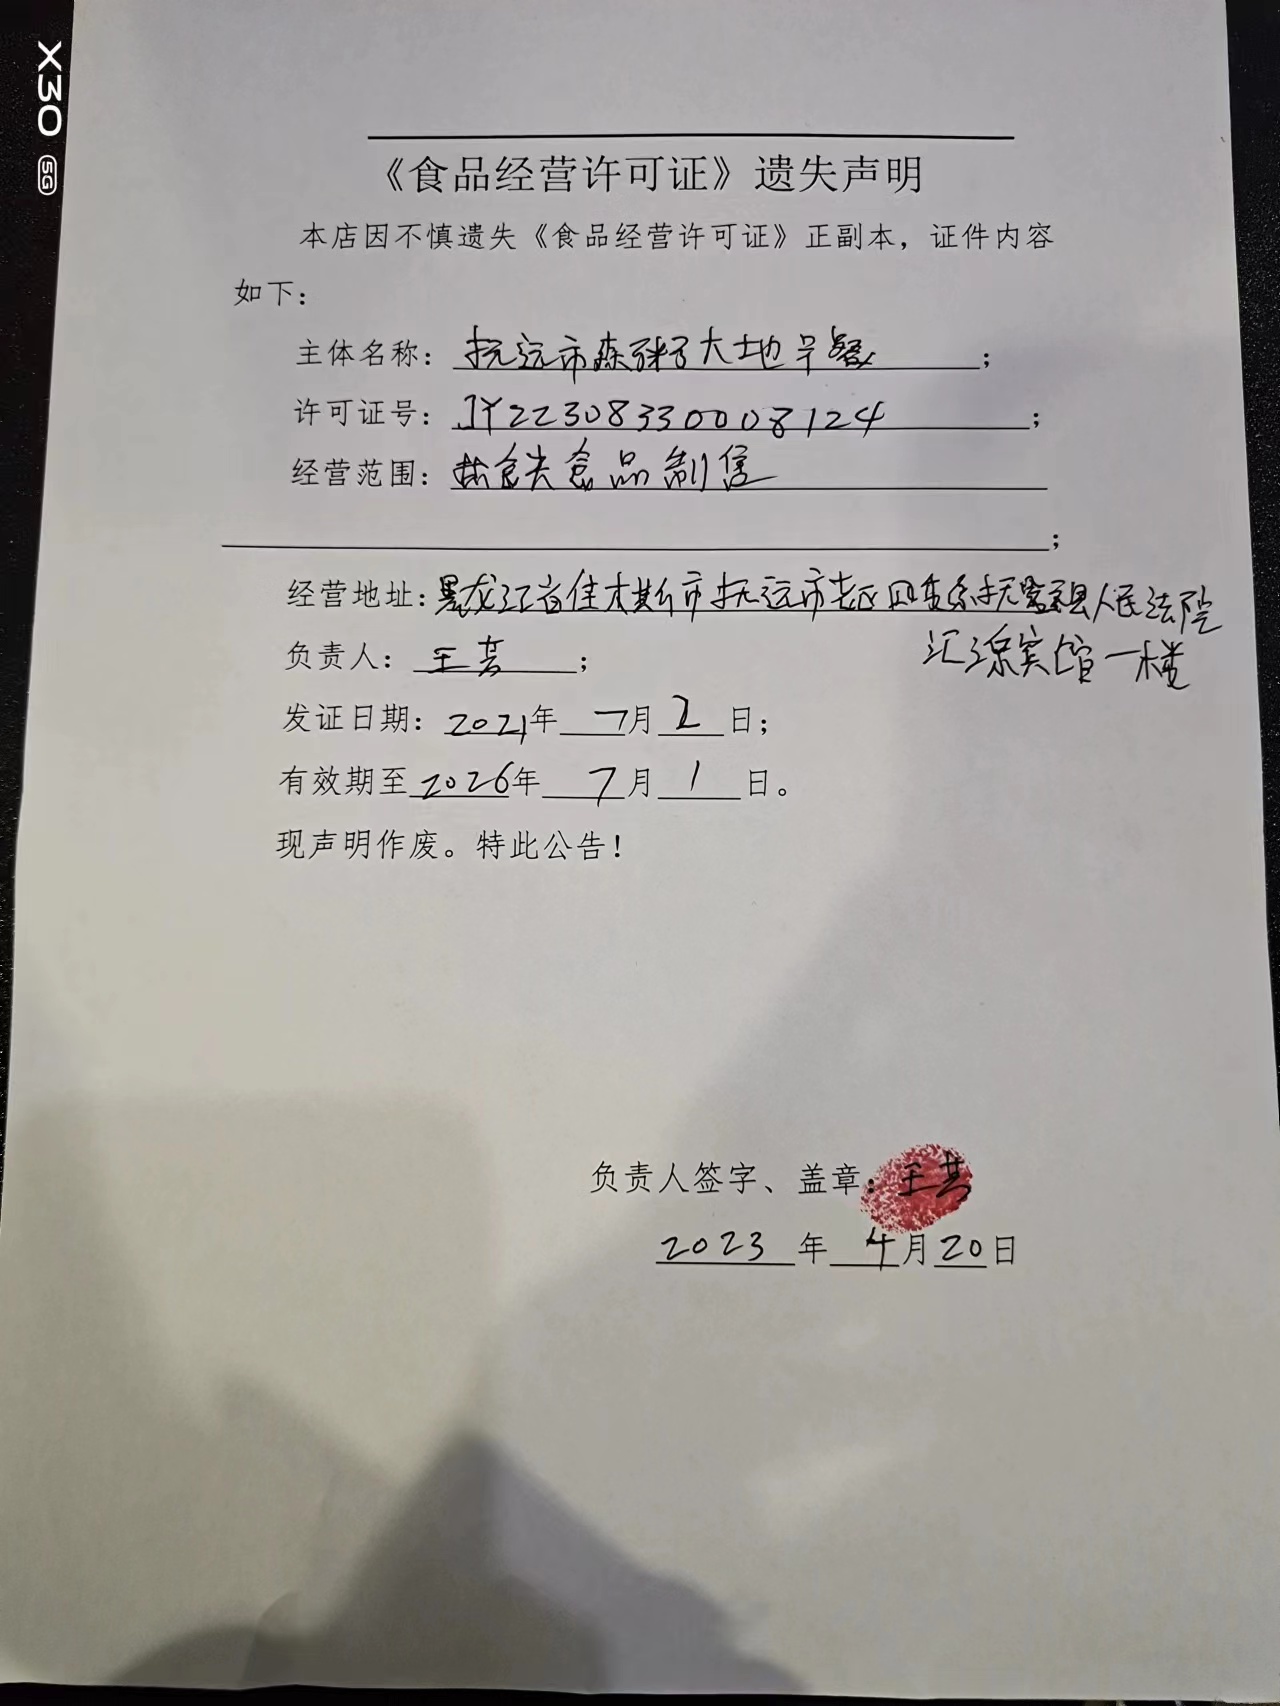 X30 5G
《食品经营许可证》遗失声明
本店因不慎遗失《食品经营许可证》正副本，证件内容
如下：
主体名称：抚远市森粥大地早餐；
许可证号：JY22308330008124；
经营范围：热食类食品制售
；
经营地址：黑龙江省佳木斯市抚远市老区四委原抚远县人民法院
汇源宾馆一楼
负责人：王芸；
发证日期：2021年7月2日；
有效期至2026年7月1日。
现声明作废。特此公告！
负责人签字、盖章：王芸
2023年4月20日